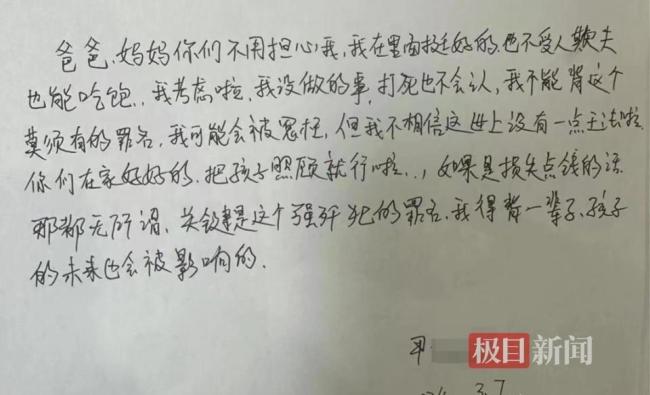 爸爸、妈妈你们不用担心我,我在里面挺好的,也不受人欺夫
也能吃饱,我考虑啦,我没做的事,打死也不会认,我不能背这个
莫须有的罪名,我可能会被冤枉,但我不相信这世上没有一点王法啦
你们在家好好的,把孩子照顾就行啦..,如果是损失点钱的话
那都无所谓,关键是这个强歼犯的罪名,我得背一辈子,孩子
的未来也会被影响的.
极目新闻
3.7